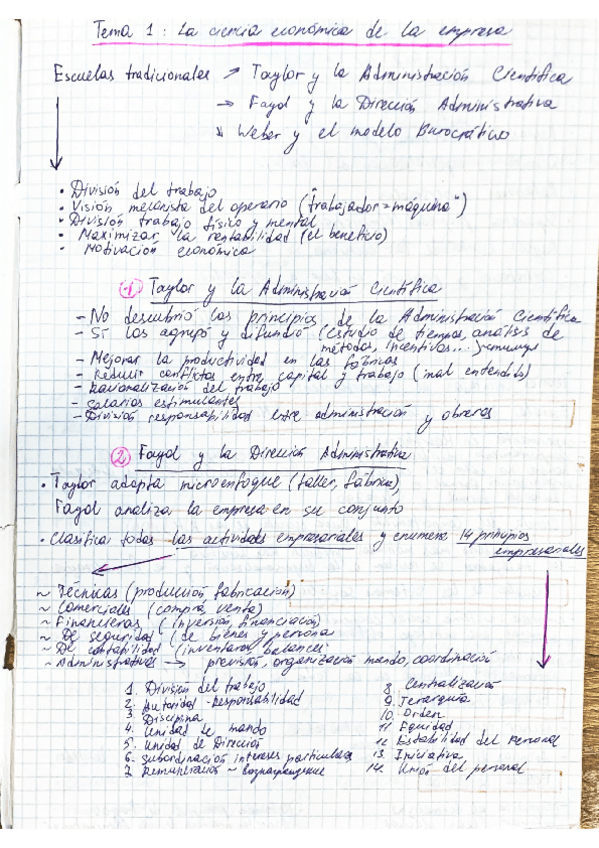 Tema 1: La ciencia económica de la empresa
Escuelas tradicionales → Taylor y la Administración Científica
→ Fayol y la Dirección Administrativa
↘ Weber y el modelo Burocrático
• División del trabajo
• Visión mecanista del operario ("trabajador = máquina")
• División trabajo físico y mental
• Maximizar la rentabilidad (el beneficio)
• Motivación económica
1 Taylor y la Administración Científica
- No descubrió los principios de la Administración Científica
- Sí los agrupó y difundió (estudio de tiempos, análisis de
métodos, incentivos...)
- Mejorar la productividad en las fábricas
- Reducir conflictos entre capital y trabajo (mal entendido)
- Racionalización del trabajo
- Salarios estimulantes
- División responsabilidad entre administración y obreros
2 Fayol y la Dirección Administrativa
• Taylor adopta microenfoque (taller, fábrica),
Fayol analiza la empresa en su conjunto
• Clasifica todas las actividades empresariales y enumera 14 principios
empresariales
~ Técnicas (producción, fabricación)
~ Comerciales (compra, venta)
~ Financieras (inversión, financiación)
~ De seguridad (de bienes y persona
~ De contabilidad (inventarios, balances
~ Administrativas → previsión, organización mando, coordinación
1. División del trabajo
2. Autoridad - Responsabilidad
3. Disciplina
4. Unidad de mando
5. Unidad de Dirección
6. Subordinación intereses particulares
7. Remuneración - вознаграждение
8. Centralización
9. Jerarquía
10. Orden
11. Equidad
12. Estabilidad del Personal
13. Iniciativa
14. Unión del personal